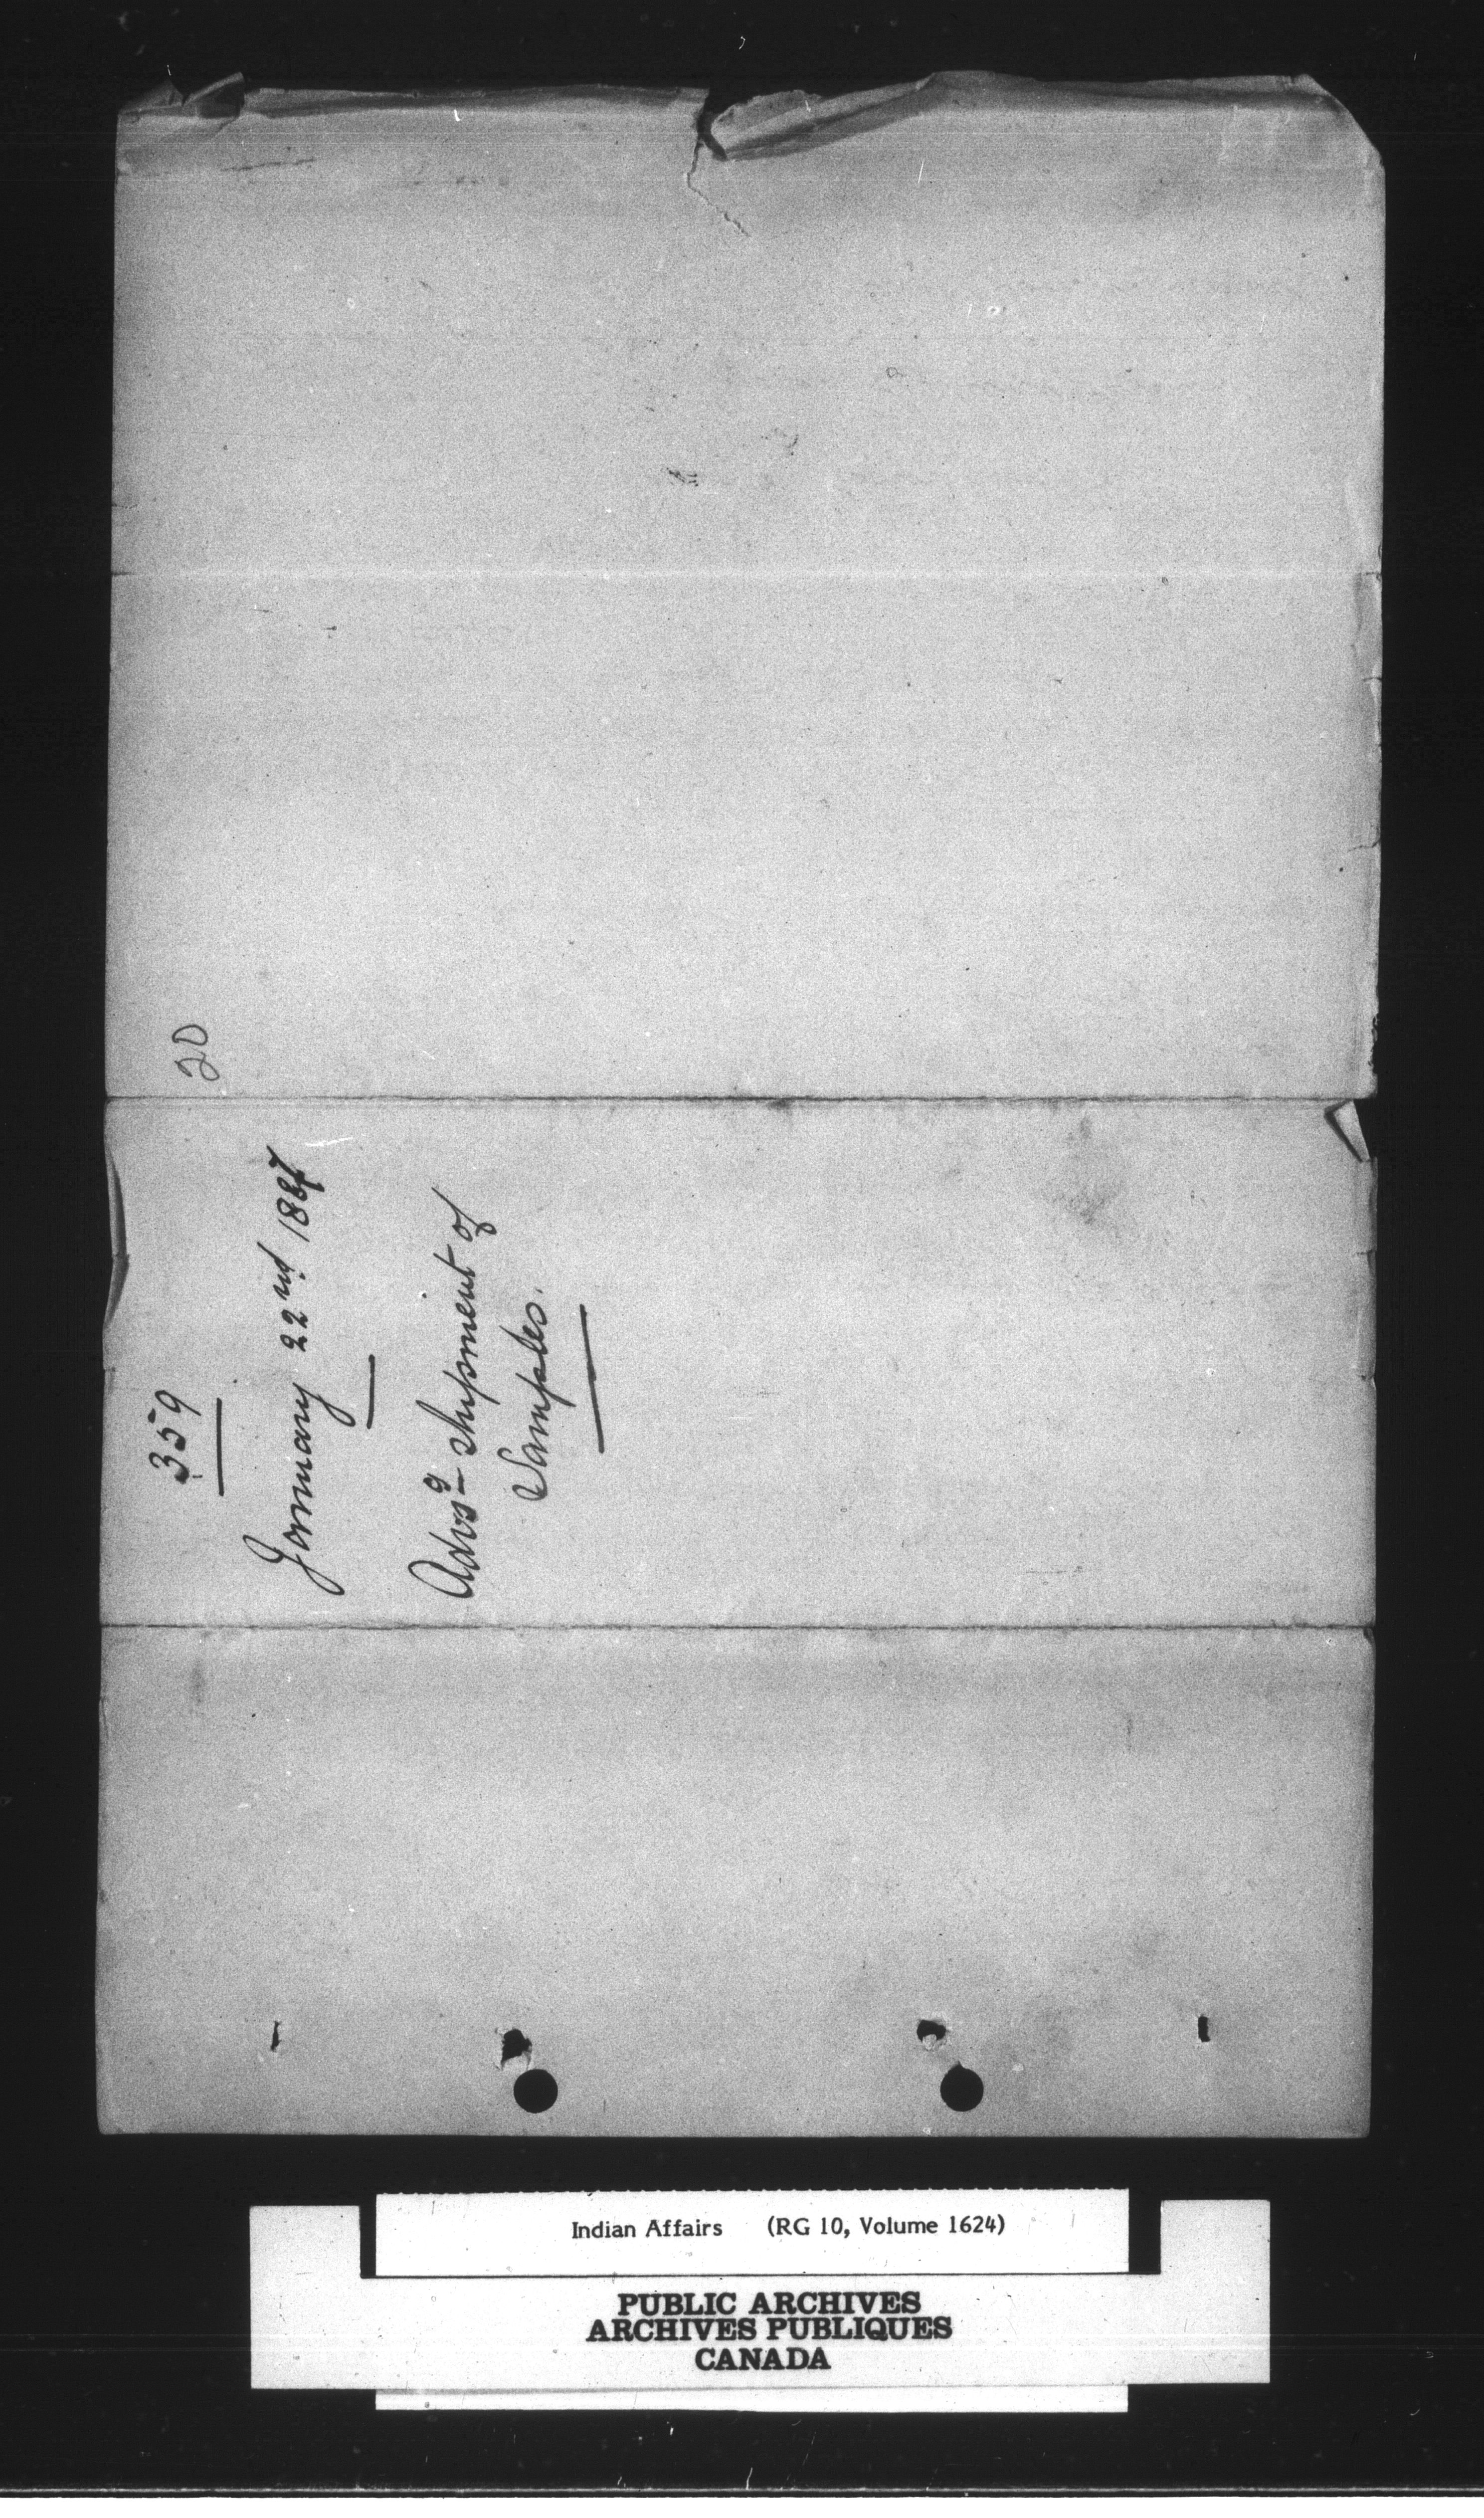 20
359
January 22nd 1887
Advsg shipment of
Samples.
Indian Affairs (RG 10, Volume 1624)
PUBLIC ARCHIVES
ARCHIVES PUBLIQUES
CANADA